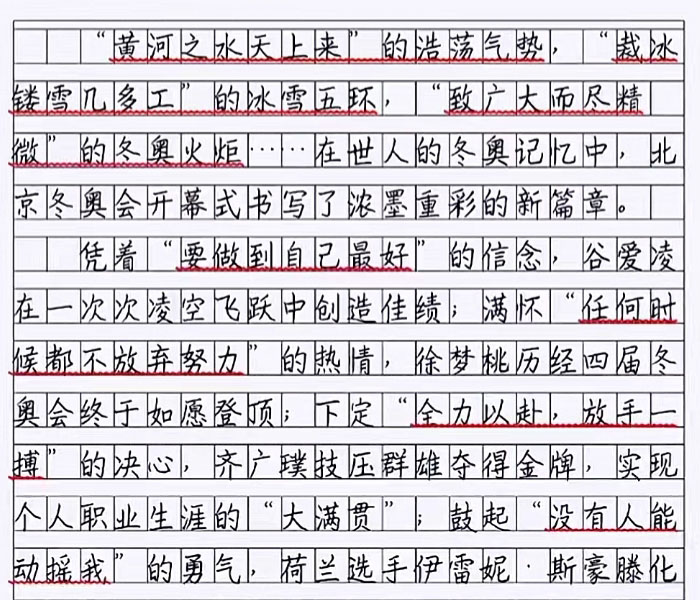 “黄河之水天上来”的浩荡气势，“裁冰
镂雪几多工”的冰雪五环，“致广大而尽精
微”的冬奥火炬……在世人的冬奥记忆中，北
京冬奥会开幕式书写了浓墨重彩的新篇章。
凭着“要做到自己最好”的信念，谷爱凌
在一次次凌空飞跃中创造佳绩；满怀“任何时
候都不放弃努力”的热情，徐梦桃历经四届冬
奥会终于如愿登顶；下定“全力以赴，放手一
搏”的决心，齐广璞技压群雄夺得金牌，实现
个人职业生涯的“大满贯”；鼓起“没有人能
动摇我”的勇气，荷兰选手伊雷妮·斯豪滕化